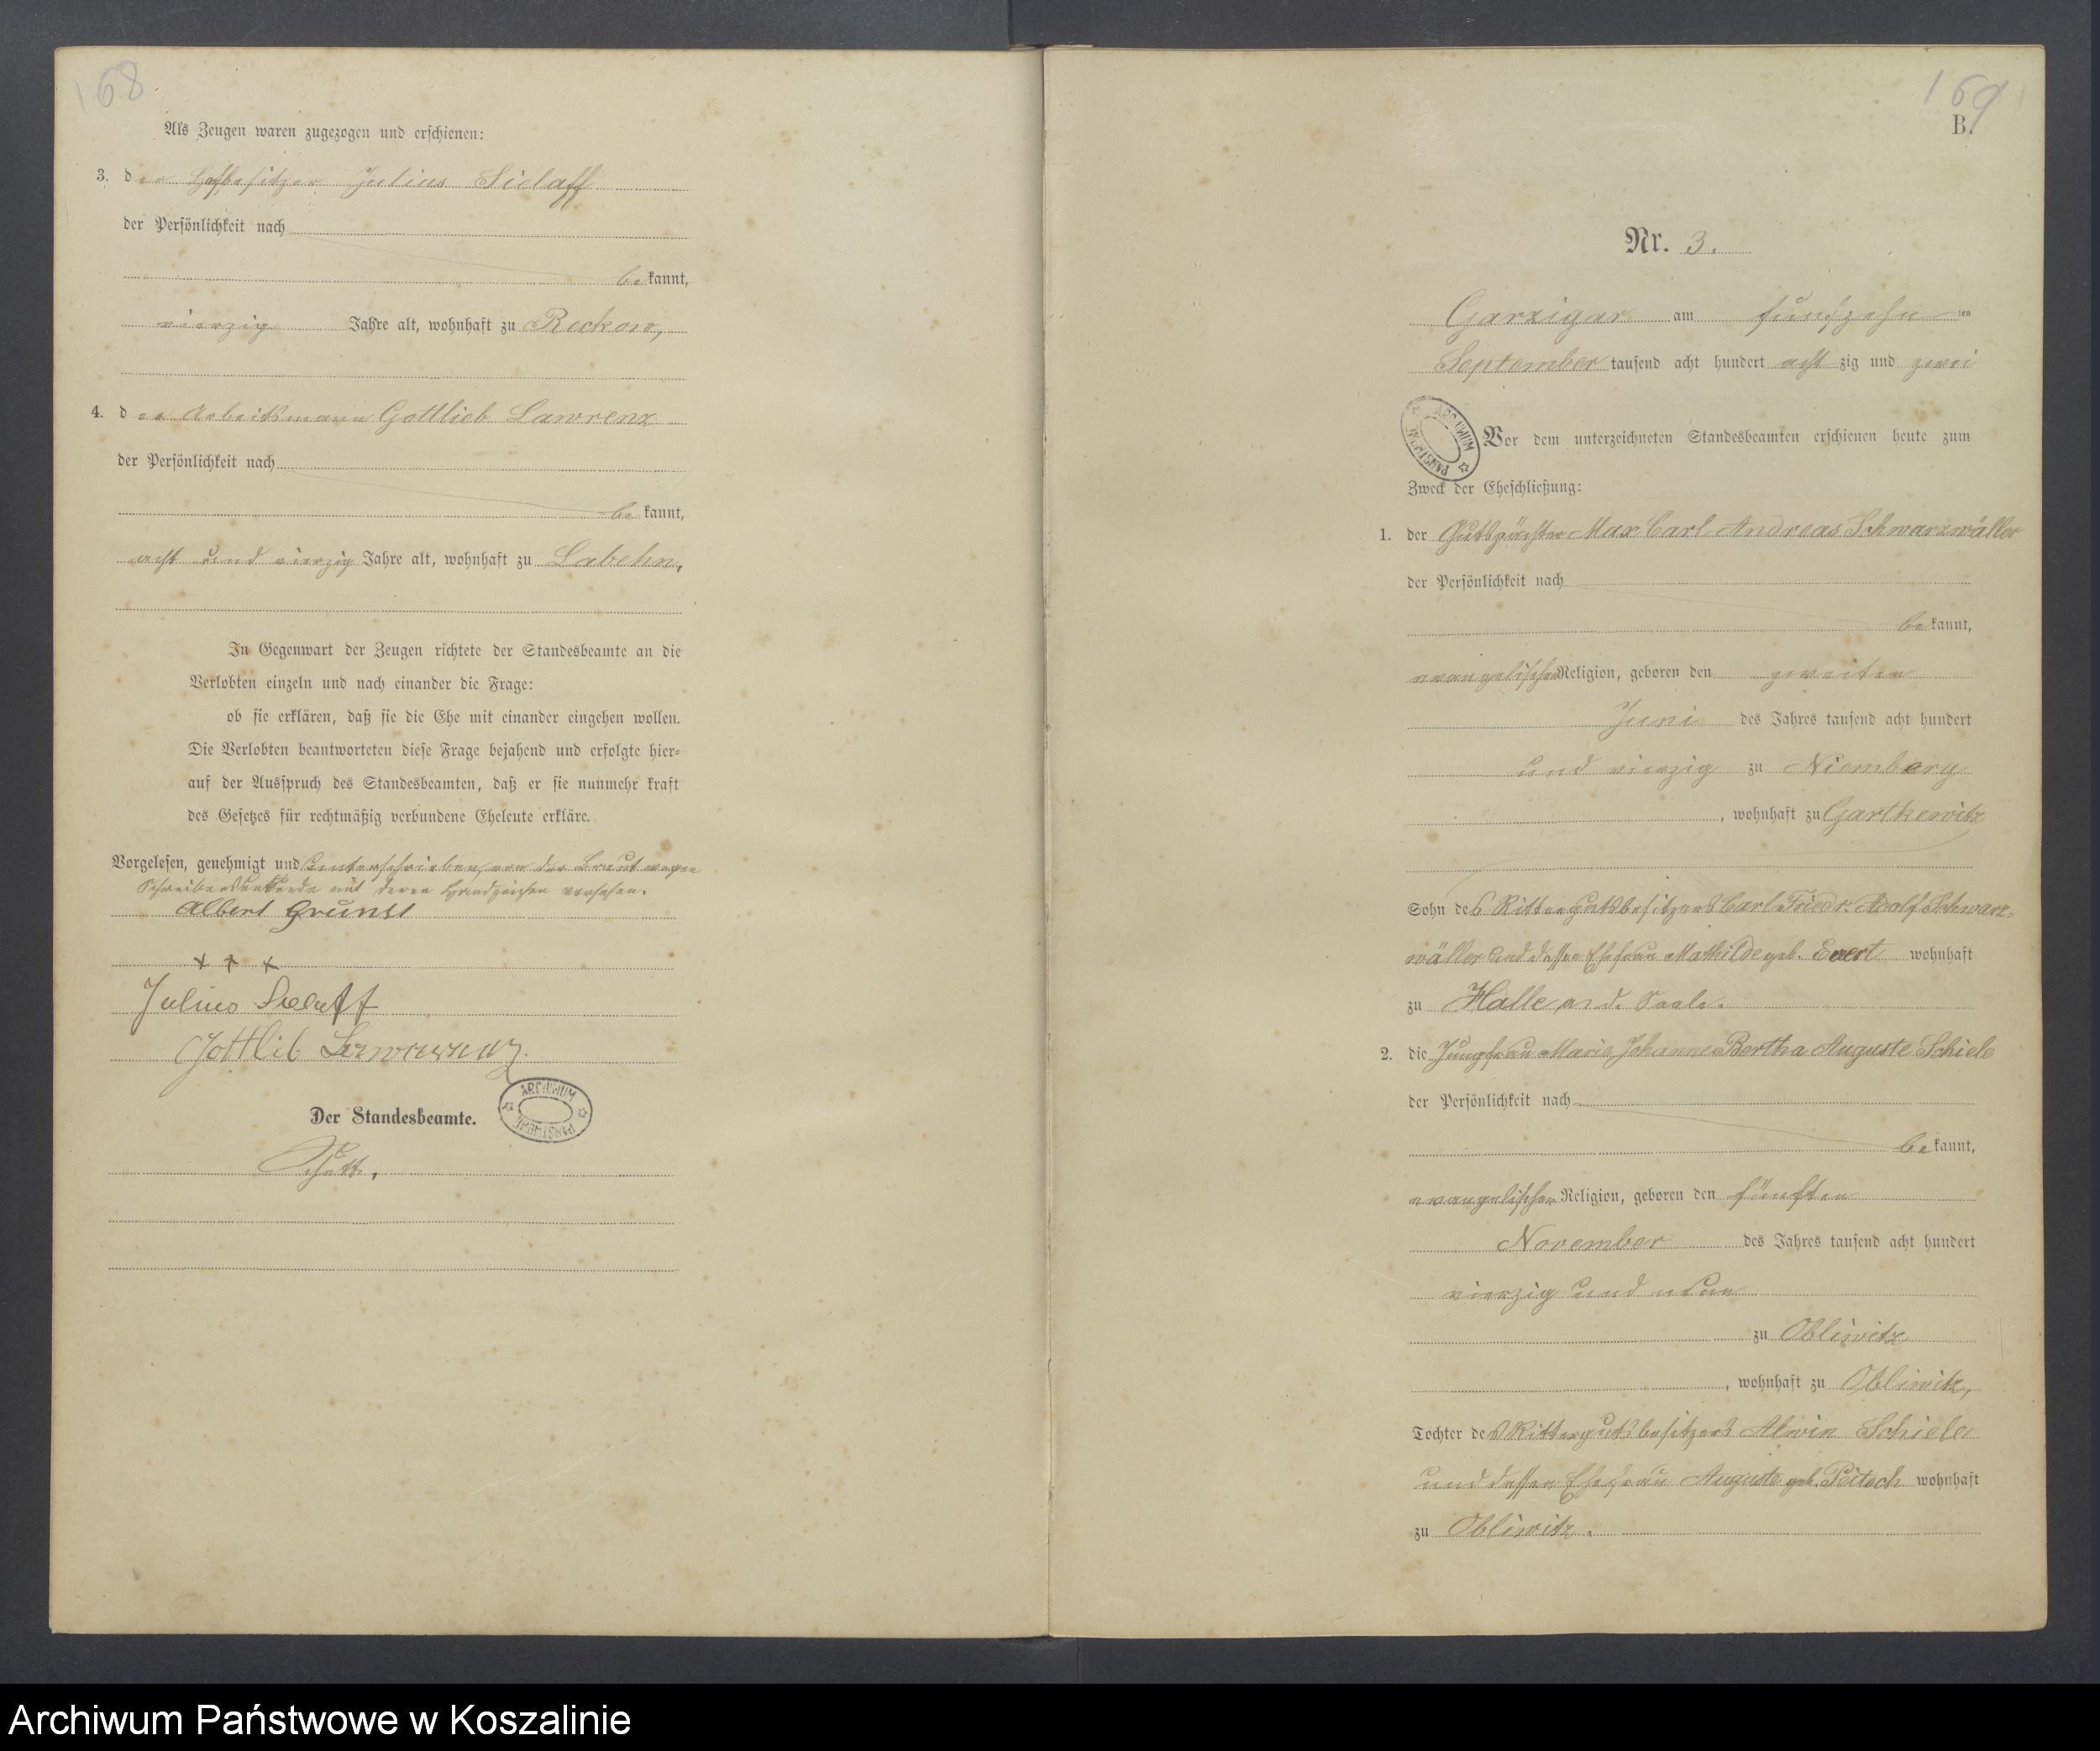 168
Als Zeugen waren zugezogen und erschienen:
3. der Hofbesitzer Julius Sielaff
der Persönlichkeit nach
bekannt,
vierzig Jahre alt, wohnhaft zu Reckow,
4. der Arbeitsmann Gottlieb Lawrenz
der Persönlichkeit nach
bekannt,
acht und vierzig Jahre alt, wohnhaft zu Labehn,
In Gegenwart der Zeugen richtete der Standesbeamte an die
Verlobten einzeln und nach einander die Frage:
ob sie erklären, daß sie die Ehe mit einander eingehen wollen.
Die Verlobten beantworteten diese Frage bejahend und erfolgte hier-
auf der Ausspruch des Standesbeamten, daß er sie nunmehr kraft
des Gesetzes für rechtmäßig verbundene Eheleute erkläre.
Vorgelesen, genehmigt und unterschrieben, von der Braut wegen
Schreibensunkunde mit deren Handzeichen versehen.
Albert Grunst
+ + +
Julius Sielaff
Gottlib
Der Standesbeamte.
ARCHIWUM PAŃSTWOWE
169
B.
Nr. 3.
Garzigar am funfzehn ten
September tausend acht hundert acht zig und zwei
ARCHIWUM PAŃSTWOWE
Vor dem unterzeichneten Standesbeamten erschienen heute zum
Zweck der Eheschließung:
1. der Gutspächter Max Carl Andreas Schwarzwäller
der Persönlichkeit nach
bekannt,
evangelischer Religion, geboren den zweiten
Juni des Jahres tausend acht hundert
und vierzig zu Niemberg
, wohnhaft zu Gartkewitz
Sohn des Rittergutsbesitzers Carl Friedr. Adolf Schwarz-
wäller und dessen Ehefrau Mathilde geb. Evert wohnhaft
zu Halle an d. Saale.
2. die Jungfrau Marie Johanne Bertha Auguste Schiele
der Persönlichkeit nach
bekannt,
evangelischer Religion, geboren den fünften
November des Jahres tausend acht hundert
vierzig und neun
zu Obliwitz
, wohnhaft zu Obliwitz,
Tochter des Rittergutsbesitzers Alwin Schiele
und dessen Ehefrau Auguste geb. Peitsch wohnhaft
zu Obliwitz.
Archiwum Państwowe w Koszalinie